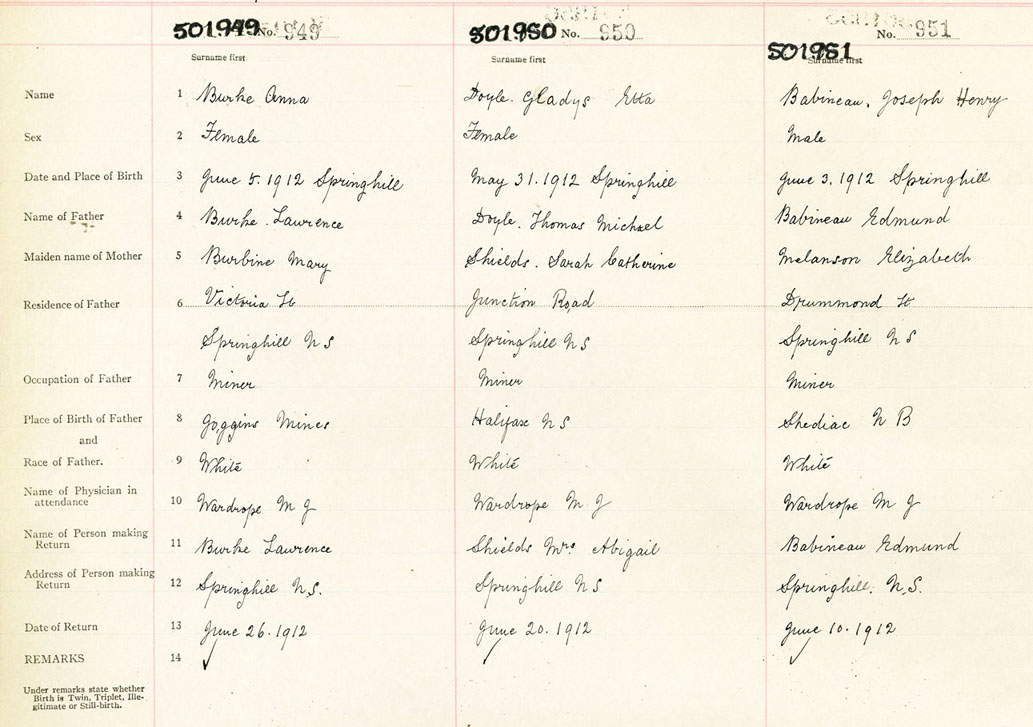 501949 No. 949 501950 No. 950 No. 951
501951
Surname first Surname first Surname first
Name 1 Burke Anna Doyle. Gladys Etta Babineau, Joseph Henry
Sex 2 Female Female Male
Date and Place of Birth 3 June 5. 1912 Springhill May 31. 1912 Springhill June 3. 1912 Springhill
Name of Father 4 Burke. Lawrence Doyle. Thomas Michael Babineau Edmund
Maiden name of Mother 5 Burbine Mary Shields. Sarah Catherine Melanson Elizabeth
Residence of Father 6 Victoria St Junction Road Drummond St
Springhill N S Springhill N S Springhill N S
Occupation of Father 7 Miner Miner Miner
Place of Birth of Father 8 Joggins Mines Halifax N S Shediac N B
and
Race of Father. 9 White White White
Name of Physician in
attendance 10 Wardrope M J Wardrope M J Wardrope M J
Name of Person making
Return 11 Burke Lawrence Shields Mrs Abigail Babineau Edmund
Address of Person making
Return 12 Springhill N.S. Springhill N S Springhill. N.S.
Date of Return 13 June 26. 1912 June 20. 1912 June 10. 1912
REMARKS 14 ✓ ✓ ✓
Under remarks state whether
Birth is Twin, Triplet, Ille-
gitimate or Still-birth.